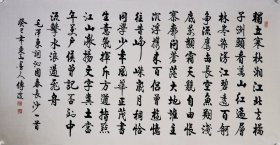 獨立寒秋湘江北去橘
子洲頭看萬山紅遍層
林盡染漫江碧透百舸
爭流鷹擊長空魚翔淺
底萬類霜天競自由悵
寥廓問蒼茫大地誰主
沉浮攜來百侶曾遊憶
往昔崢嶸歲月稠恰
同學少年風華正茂書
生意氣揮斥方遒指點
江山激揚文字糞土當
年萬戶侯曾記否到中
流擊水浪遏飛舟
毛澤東詞沁園春長沙一首
癸巳年